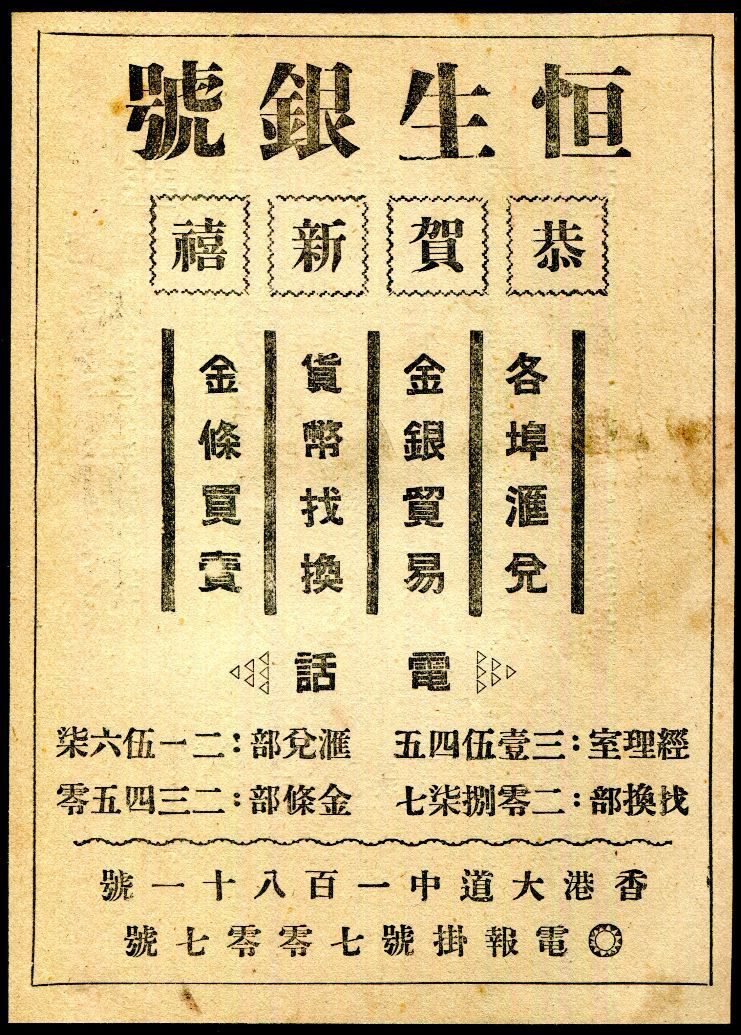 恒生銀號
恭賀新禧
各埠滙兌
金銀貿易
貨幣找換
金條買賣
電話
經理室：三壹伍四五
滙兌部：二一伍六柒
找換部：二零捌柒七
金條部：二三四五零
香港大道中一百八十一號
電報掛號七零零七號